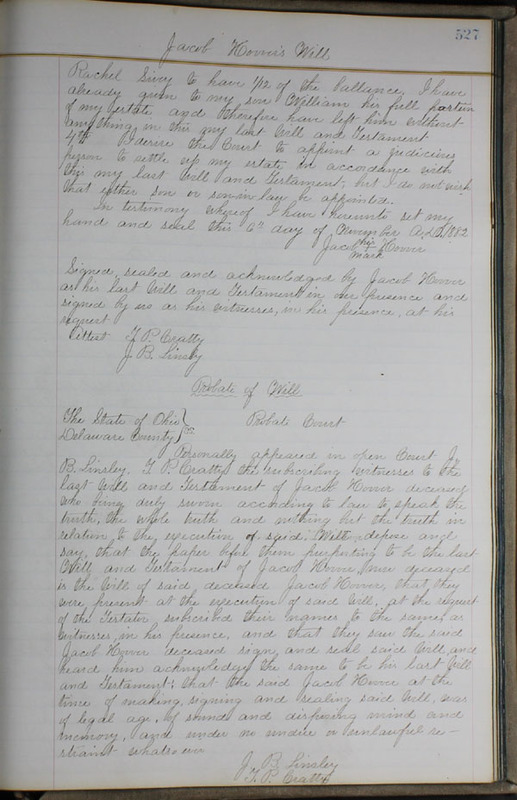 527
Jacob Hoover's Will
Rachel Sivey to have 1/12 of the ballance, I have
already given to my son William his full portion
of my estate and therefore have left him without
anything in this my last Will and Testament
4th I desire the Court to appoint a judicious
person to settle up my estate in accordance with
this my last Will and Testament, but I do not wish
that either son or son-in-law be appointed.
In testimony whereof I have hereunto set my
hand and seal this day of November A.D. 1882
his
Jacob x Hoover
mark
Signed, sealed and acknowledged by Jacob Hoover
as his last Will and Testament in our presence and
signed by us as his witnesses, in his presence, at his
request
Attest F. P. Cratty
J. B. Linsley
Probate of Will
The State of Ohio } Probate Court
Delaware County } ss
Personally appeared in open Court J.
B. Linsley, F. P. Cratty the subscribing witnesses to the
last Will and Testament of Jacob Hoover deceased
who being duly sworn according to law to speak the
truth, the whole truth and nothing but the truth in
relation to the execution of said Will, depose and
say, that the paper before them purporting to be the last
Will and Testament of Jacob Hoover now deceased
is the Will of said, deceased Jacob Hoover, that, they
were present at the execution of said Will, at the request
of the Testator subscribed their names to the same, as
witnesses, in his presence, and that they saw the said
Jacob Hoover deceased sign, and seal said Will, and
heard him acknowledge the same to be his last Will
and Testament; that the said Jacob Hoover at the
time of making, signing and sealing said Will, was
of legal age, of sound and disposing mind and
memory, and under no undue or unlawful re-
straint whatsoever
J. B. Linsley
F. P. Cratty